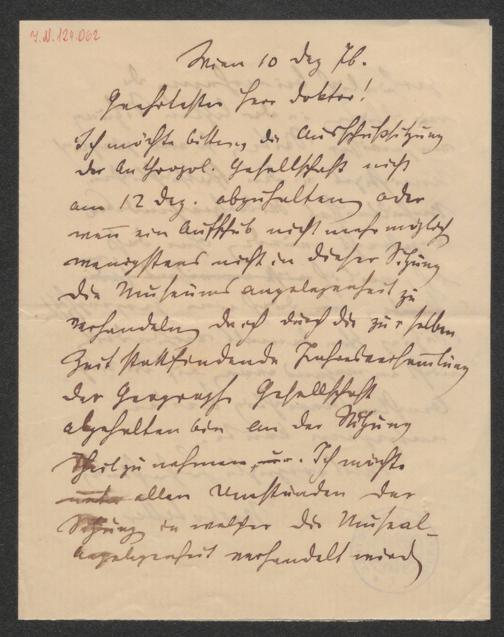 J.N. 124.062
Wien 10 Dez 76.
Geehrtester Herr Doktor!
Ich möchte bitten, die Ausschußsitzung
der Anthropol. Gesellschaft nicht
am 12 Dez. abzuhalten oder
wenn ein Aufschub nicht mehr möglich
wenigstens nicht in dieser Sitzung
die Museumsangelegenheit zu
verhandeln, da ich durch die zur selben
Zeit stattfindende Jahresversammlung
der Geograph. Gesellschaft
abgehalten bin an der Sitzung
theilzunehmen. Ich möchte
unter allen Umständen der
Sitzung in welcher die Museal-
angelegenheit verhandelt wird